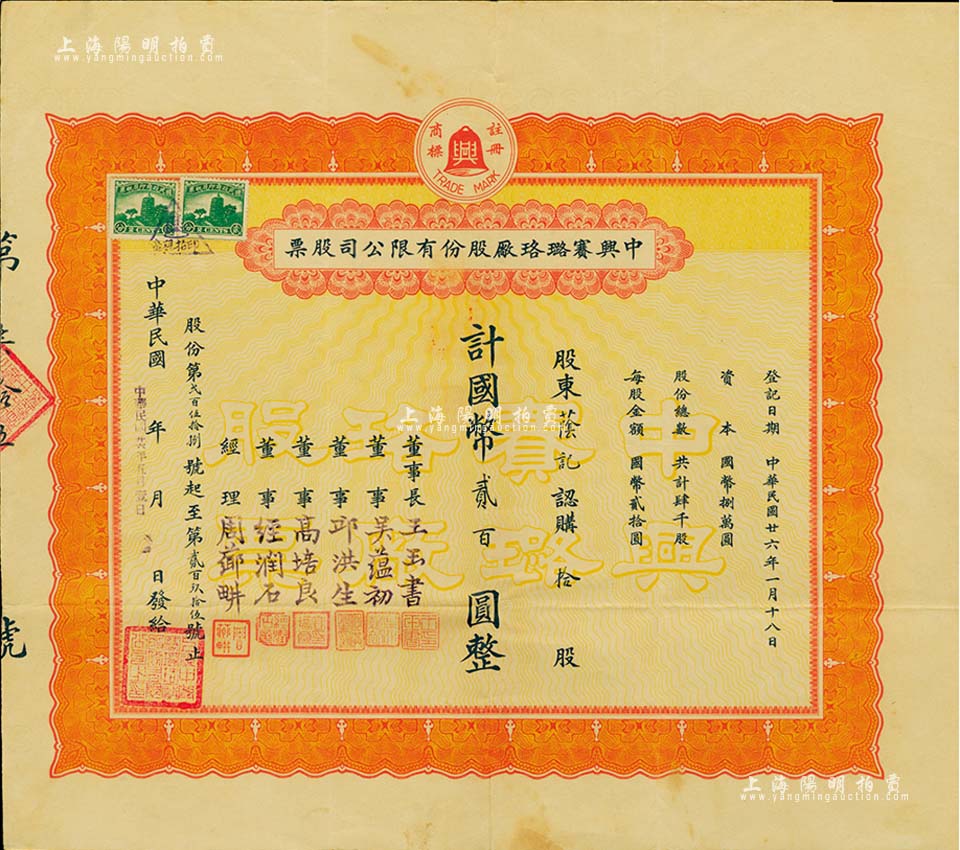 上海陽明拍賣
www.yangmingauction.com
註冊
商標
興
TRADE MARK
中興賽璐珞廠股份有限公司股票
登記日期 中華民國廿六年一月十八日
資本 國幣捌萬圓
股份總數 共計肆千股
每股金額 國幣貳拾圓
股東蔭記認購拾股
計國幣貳百圓整
董事長 王玉書
董事 吳蘊初
董事 邱洪生
董事 高培良
董事 經潤石
經理 周薌畊
股份第貳百伍拾捌號起至第貳百玖拾伍號止
中華民國 年 月 日發給
中華民國
第 拾 號
中賽珞股
興璐廠票
上海陽明拍賣
www.yangmingauction.com
上海陽明拍賣
www.yangmingauction.com